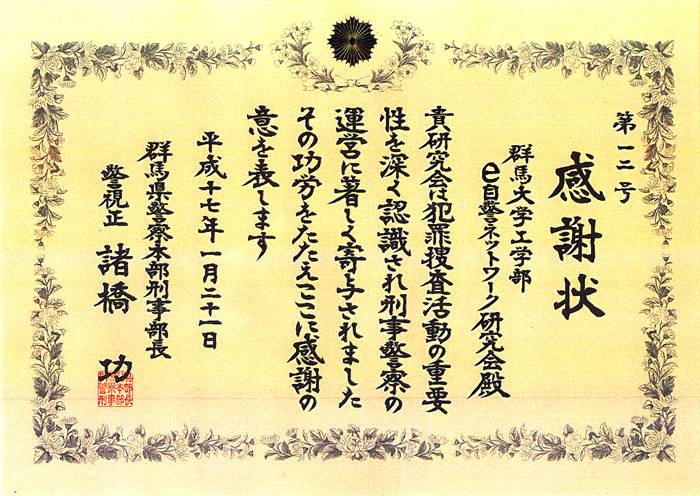 第一二号
感謝状
群馬大学工学部
e自警ネットワーク研究会殿
貴研究会は犯罪捜査活動の重要
性を深く認識され刑事警察の
運営に著しく寄与されました
その功労をたたえここに感謝の
意を表します
平成十七年一月二十一日
群馬県警察本部刑事部長
警視正 諸橋 功